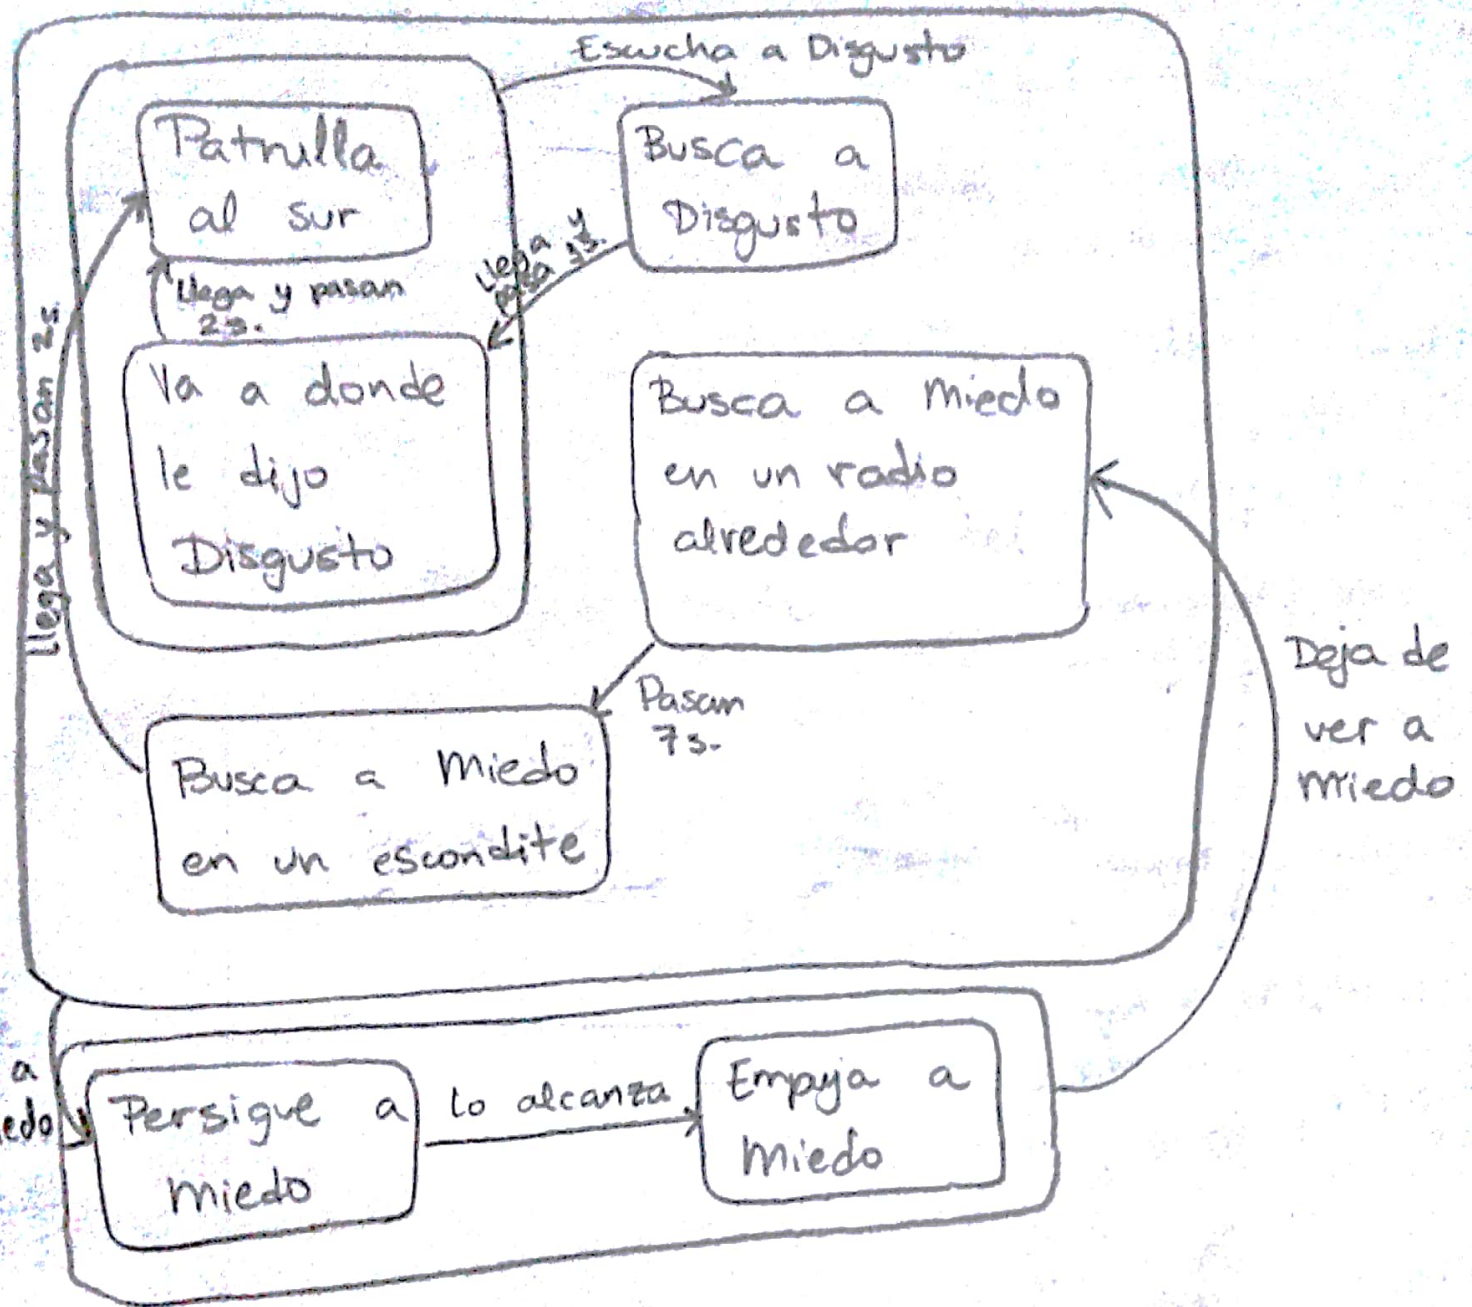 Escucha a Disgusto
Patrulla
al sur
Busca a
Disgusto
Llega y
pasa 1s.
Llega y pasan
2s.
Va a donde
le dijo
Disgusto
Busca a Miedo
en un radio
alrededor
Llega y pasan 2s.
Pasan
7s.
Busca a Miedo
en un escondite
Deja de
ver a
Miedo
a
edo
Persigue a
Miedo
Lo alcanza
Empuja a
Miedo